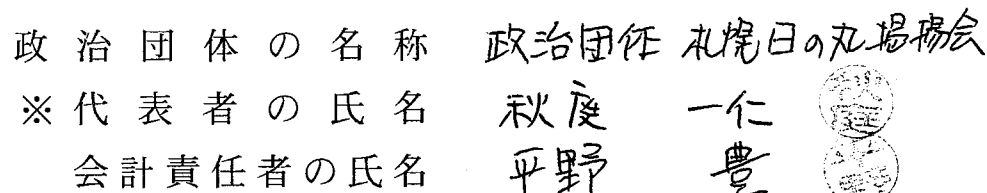 政治団体の名称 政治団体 札幌日の丸掲揚会
※代表者の氏名 秋庭 一仁 秋庭
会計責任者の氏名 平野 豊